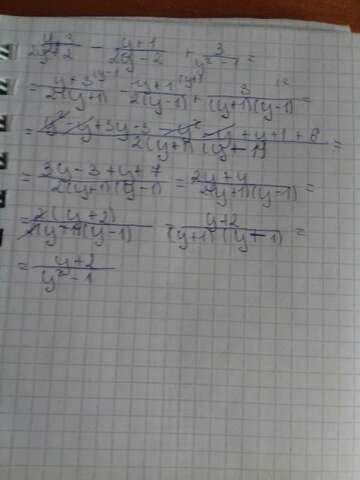 y+3/2y+2 - y+1/2y-2 + 3/y²-1 =
= y+3/2(y+1) - y+1/2(y-1) + 3/(y+1)(y-1) =
= y²-y+3y-3-y²-y+y+1+6/2(y+1)(y-1) =
= 3y-3+y+7/2(y+1)(y-1) = 2y+4/2(y+1)(y-1) =
= 2(y+2)/2(y+1)(y-1) y+2/(y+1)(y-1) =
= y+2/y²-1